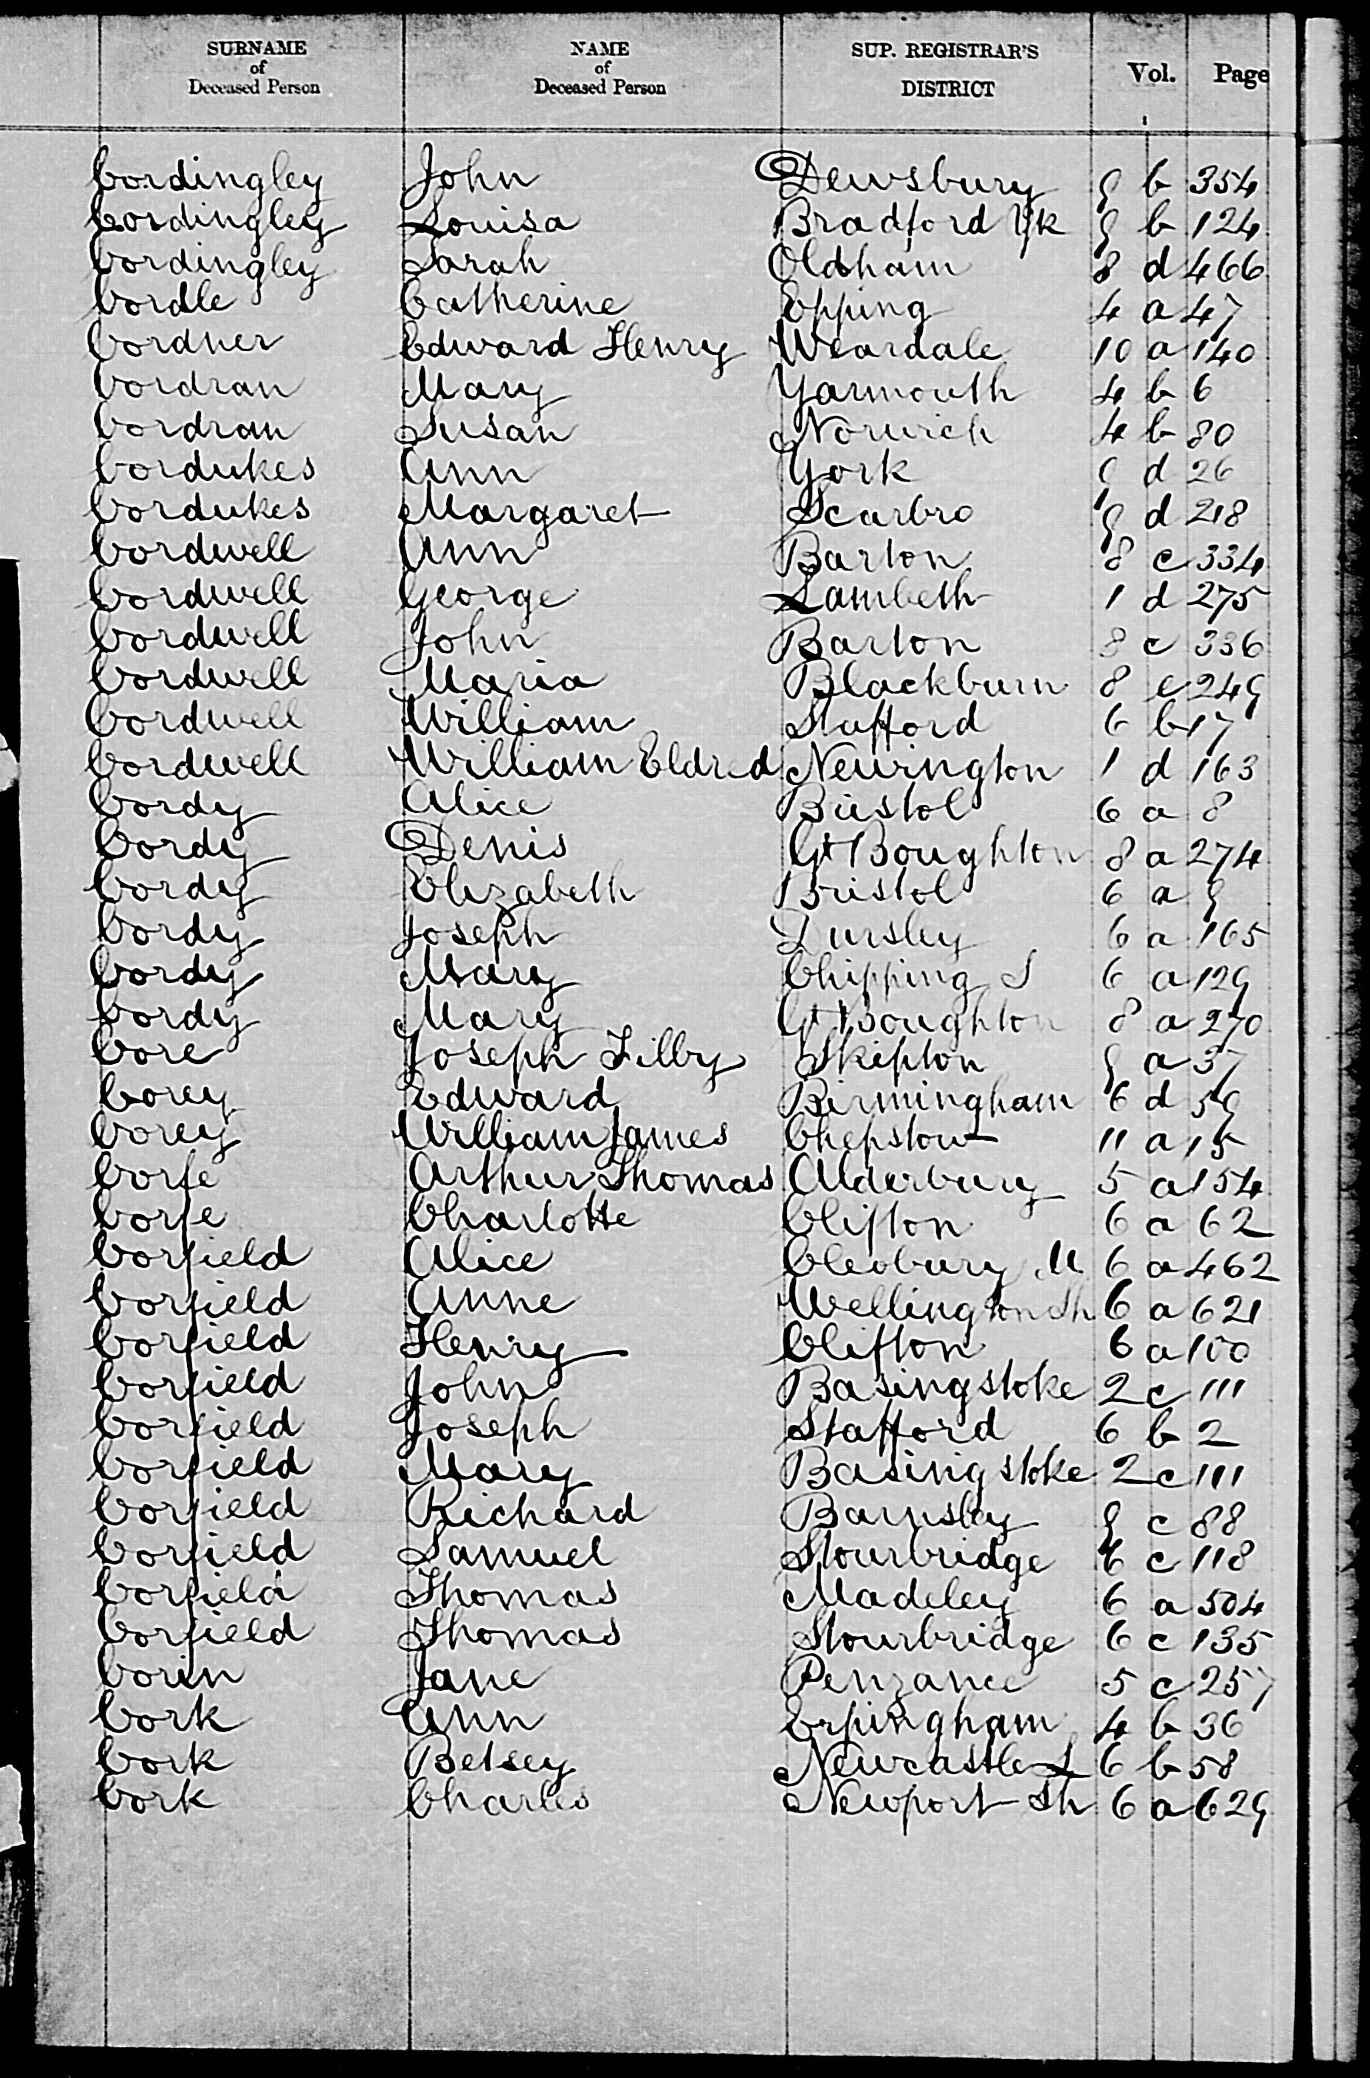 SURNAME of Deceased Person NAME of Deceased Person SUP. REGISTRAR'S DISTRICT Vol. Page
Cordingley John Dewsbury 9 b 354
Cordingley Louisa Bradford Yk 9 b 124
Cordingley Sarah Oldham 8 d 466
Cordle Catherine Epping 4 a 47
Cordner Edward Henry Weardale 10 a 140
Cordran Mary Yarmouth 4 b 6
Cordran Susan Norwich 4 b 80
Cordukes Ann York 9 d 26
Cordukes Margaret Scarbro 9 d 218
Cordwell Ann Barton 8 c 334
Cordwell George Lambeth 1 d 275
Cordwell John Barton 8 c 336
Cordwell Maria Blackburn 8 e 249
Cordwell William Stafford 6 b 17
Cordwell William Eldred Newington 1 d 163
Cordy Alice Bristol 6 a 8
Cordy Denis Gt Boughton 8 a 274
Cordy Elizabeth Bristol 6 a 9
Cordy Joseph Dursley 6 a 165
Cordy Mary Chipping S 6 a 129
Cordy Mary Gt Boughton 8 a 270
Core Joseph Filby Skipton 9 a 37
Corey Edward Birmingham 6 d 59
Corey William James Chepstow 11 a 15
Corfe Arthur Thomas Alderbury 5 a 154
Corfe Charlotte Clifton 6 a 62
Corfield Alice Cleobury M 6 a 462
Corfield Anne Wellington Sh 6 a 621
Corfield Henry Clifton 6 a 100
Corfield John Basingstoke 2 c 111
Corfield Joseph Stafford 6 b 2
Corfield Mary Basingstoke 2 c 111
Corfield Richard Barnsley 9 c 88
Corfield Samuel Stourbridge 6 c 118
Corfield Thomas Madeley 6 a 504
Corfield Thomas Stourbridge 6 c 135
Corin Jane Penzance 5 c 257
Cork Ann Erpingham 4 b 36
Cork Betsey Newcastle L 6 b 58
Cork Charles Newport Sh 6 a 629